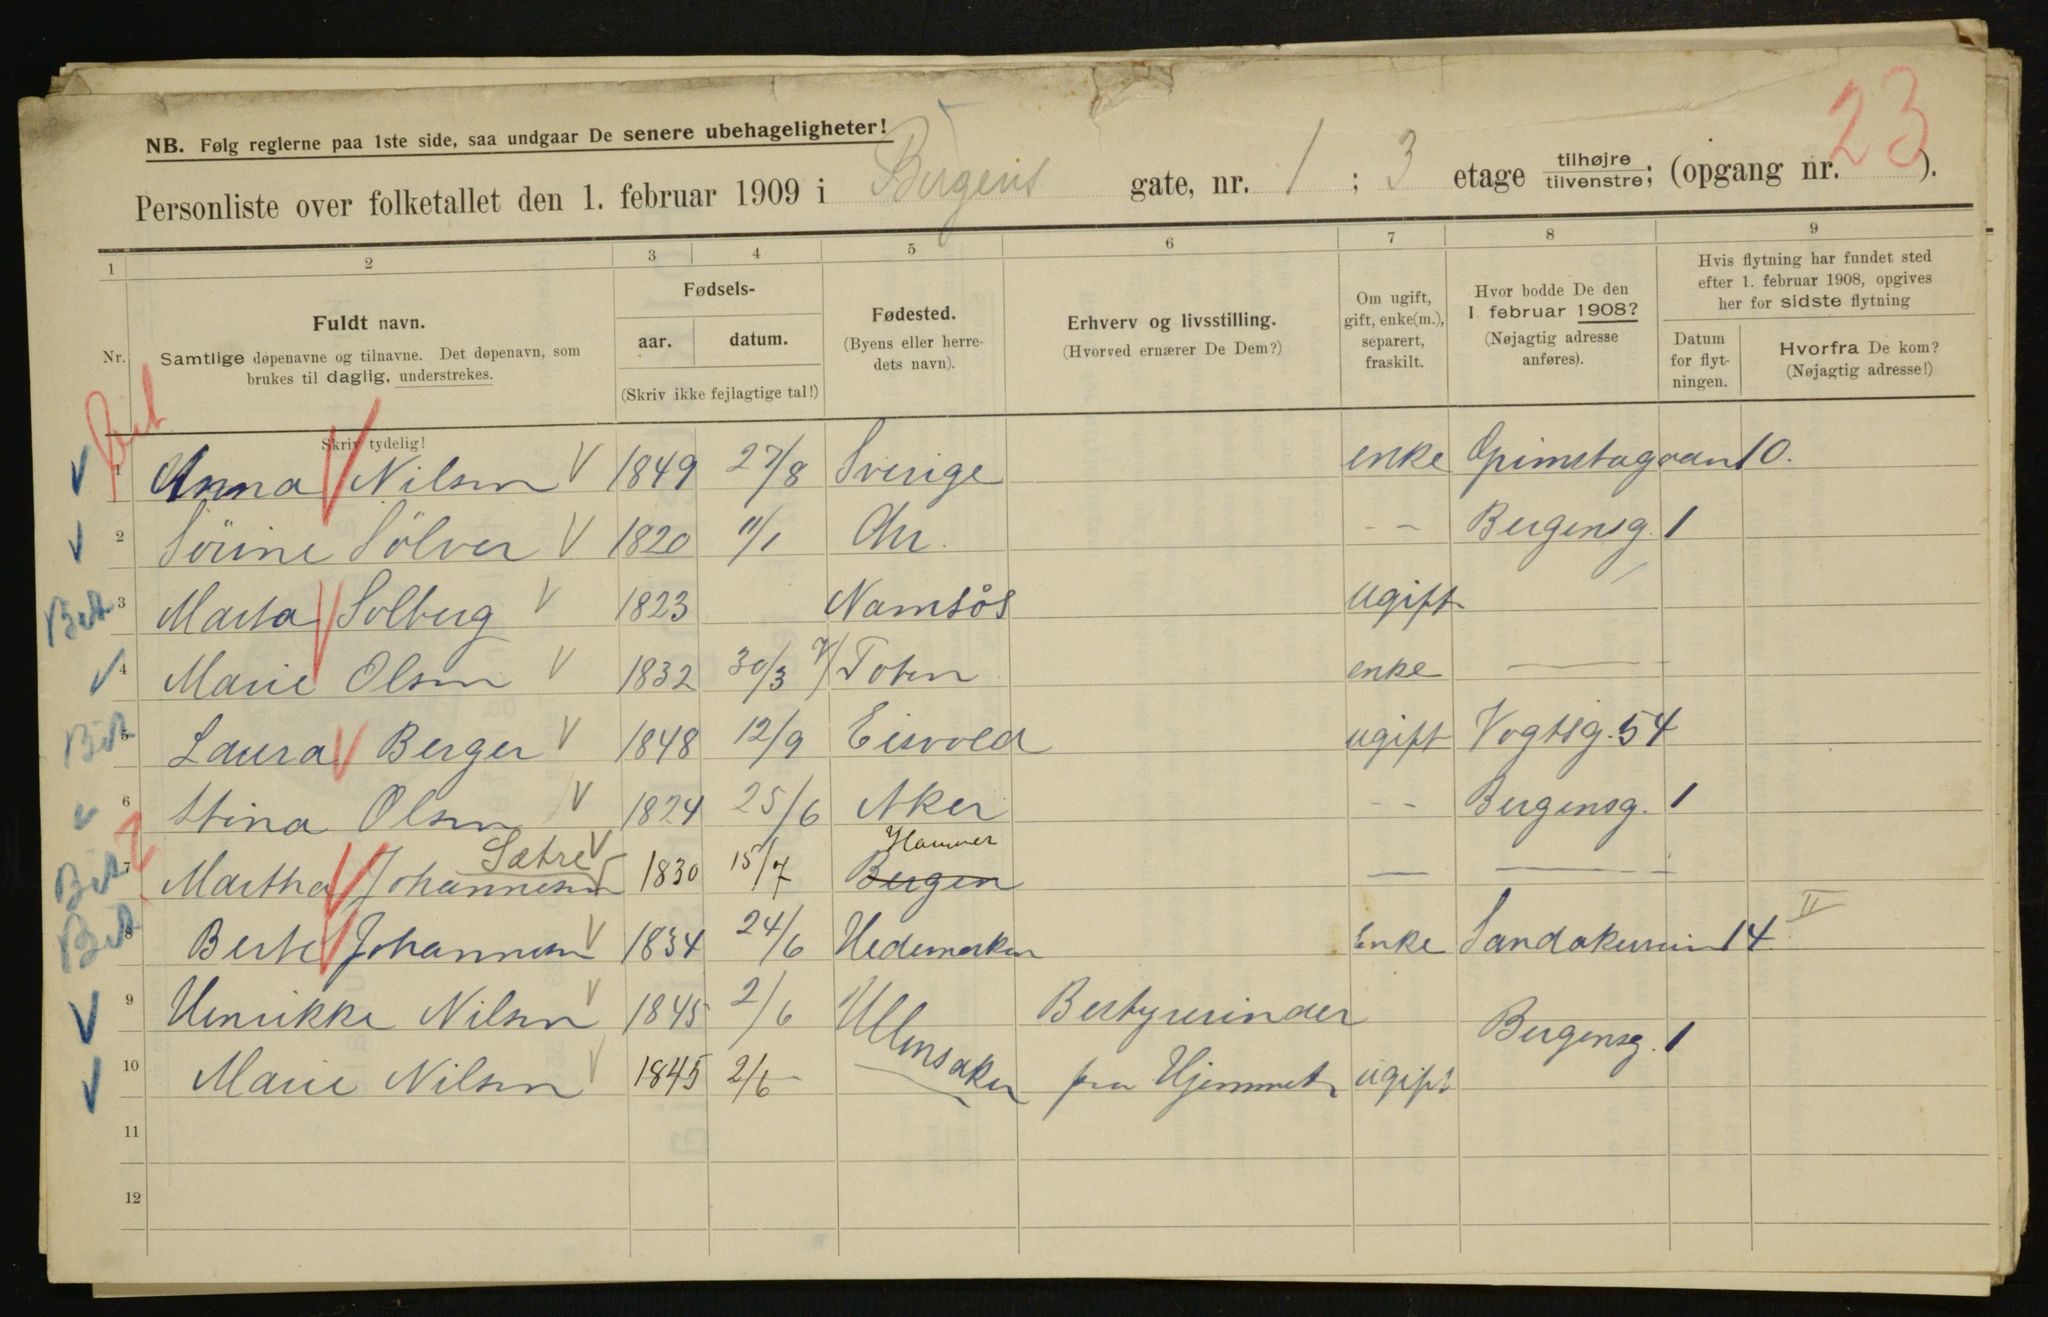 23
NB. Følg reglerne paa 1ste side, saa undgaar De senere ubehageligheter!
Personliste over folketallet den 1. februar 1909 i Bergens gate, nr. 1 ; 3 etage tilhøjre tilvenstre; (opgang nr. ).
1 2 3 4 5 6 7 8 9
Nr.
Fuldt navn.
Samtlige døpenavne og tilnavne. Det døpenavn, som
brukes til daglig, understrekes.
Skriv tydelig!
Fødsels-
aar. datum.
(Skriv ikke fejlagtige tal!)
Fødested.
(Byens eller herre-
dets navn).
Erhverv og livsstilling.
(Hvorved ernærer De Dem?)
Om ugift,
gift, enke(m.),
separert,
fraskilt.
Hvor bodde De den
1 februar 1908?
(Nøjagtig adresse
anføres).
Hvis flytning har fundet sted
efter 1. februar 1908, opgives
her for sidste flytning
Datum
for flyt-
ningen.
Hvorfra De kom?
(Nøjagtig adresse!)
1 Anna Nilsen 1849 27/8 Sverige enke 10.
2 Sörine Sölver 1820 11/1 Chr. - - Bergensg. 1
3 Marta Solberg 1823 Namsös ugift
4 Marie Olsen 1832 30/3 V/ Toten enke —
5 Laura Berger 1848 12/9 Eisvold ugift Vogtsg. 54
6 Stina Olsen 1824 25/6 Aker - - Bergensg. 1
Sætre Hammer
7 Martha Johannesen 1830 15/7 Bergen — —
8 Berte Johannesen 1834 24/6 Hedemarken Enke Sandakerveien 14 II
9 Henrikke Nilsen 1845 2/6 Ullensaker Bestyrerinder Bergensg. 1
10 Marie Nilsen 1845 2/6 for Hjemmet ugift
11
12